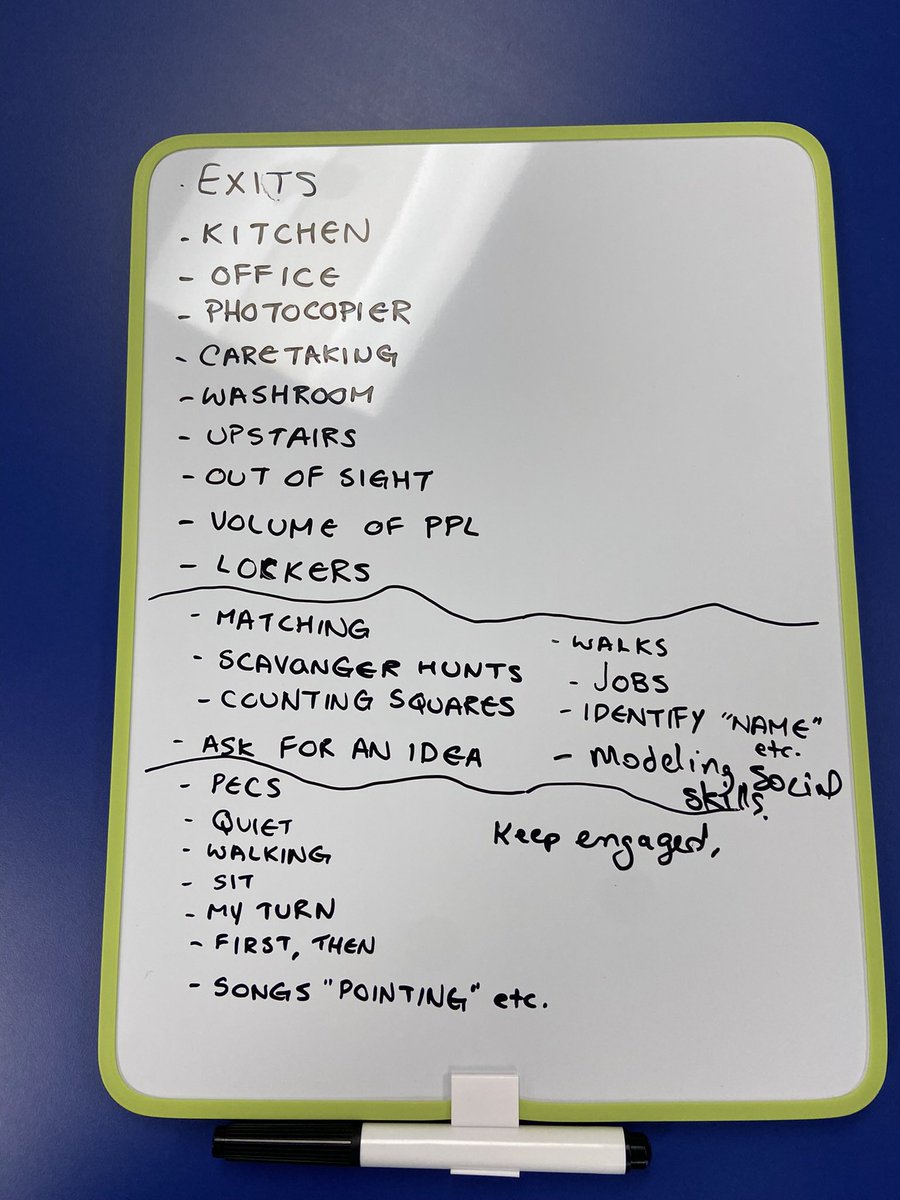 · EXITS
- KITCHEN
- OFFICE
- PHOTOCOPIER
- CARETAKING
- WASHROOM
- UPSTAIRS
- OUT OF SIGHT
- VOLUME OF PPL
- LOCKERS
- MATCHING
- SCAVANGER HUNTS
- COUNTING SQUARES
- ASK FOR AN IDEA
- WALKS
- JOBS
- IDENTIFY "NAME"
etc.
- Modeling Social
skills.
- PECS
- QUIET
- WALKING
- SIT
- MY TURN
- FIRST, THEN
- SONGS "POINTING" etc.
Keep engaged,